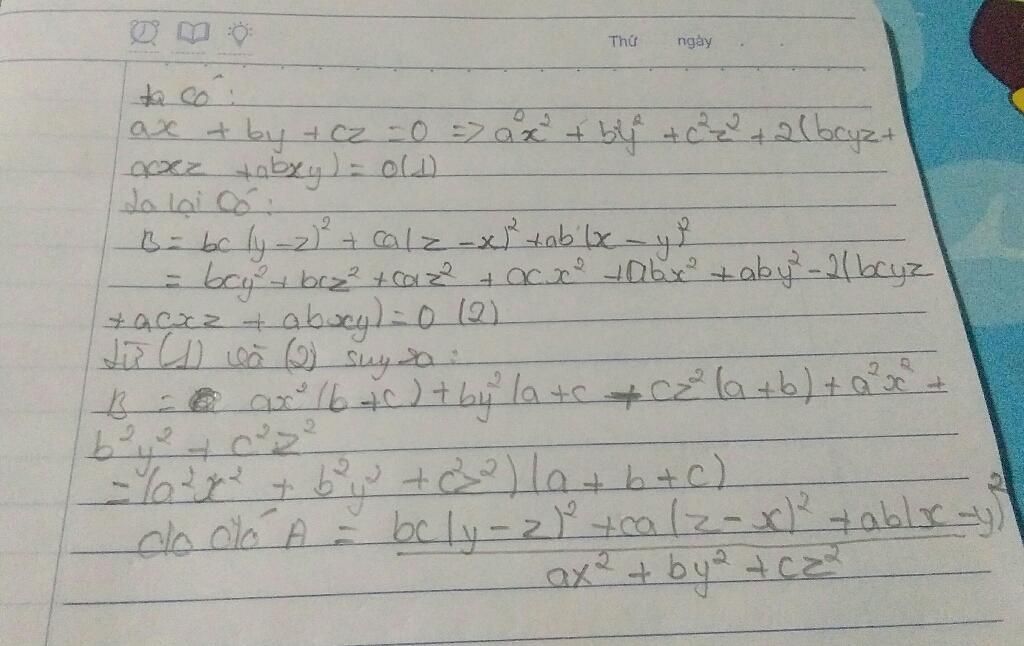 Thứ ngày . .
ta có :
ax + by + cz = 0 => a²x² + b²y² + c²z² + 2(bcyz +
acxz + abxy) = 0 (1)
Ta lại có :
B = bc(y - z)² + ca(z - x)² + ab(x - y)²
= bcy² + bcz² + caz² + acx² + abx² + aby² - 2(bcyz
+ acxz + abxy) = 0 (2)
từ (1) và (2) suy ra :
B = ax²(b + c) + by²(a + c + cz²(a + b) + a²x² +
b²y² + c²z²
= (a²x² + b²y² + c²z²)(a + b + c)
do đó A = bc(y - z)² + ca(z - x)² + ab(x - y)²
ax² + by² + cz²